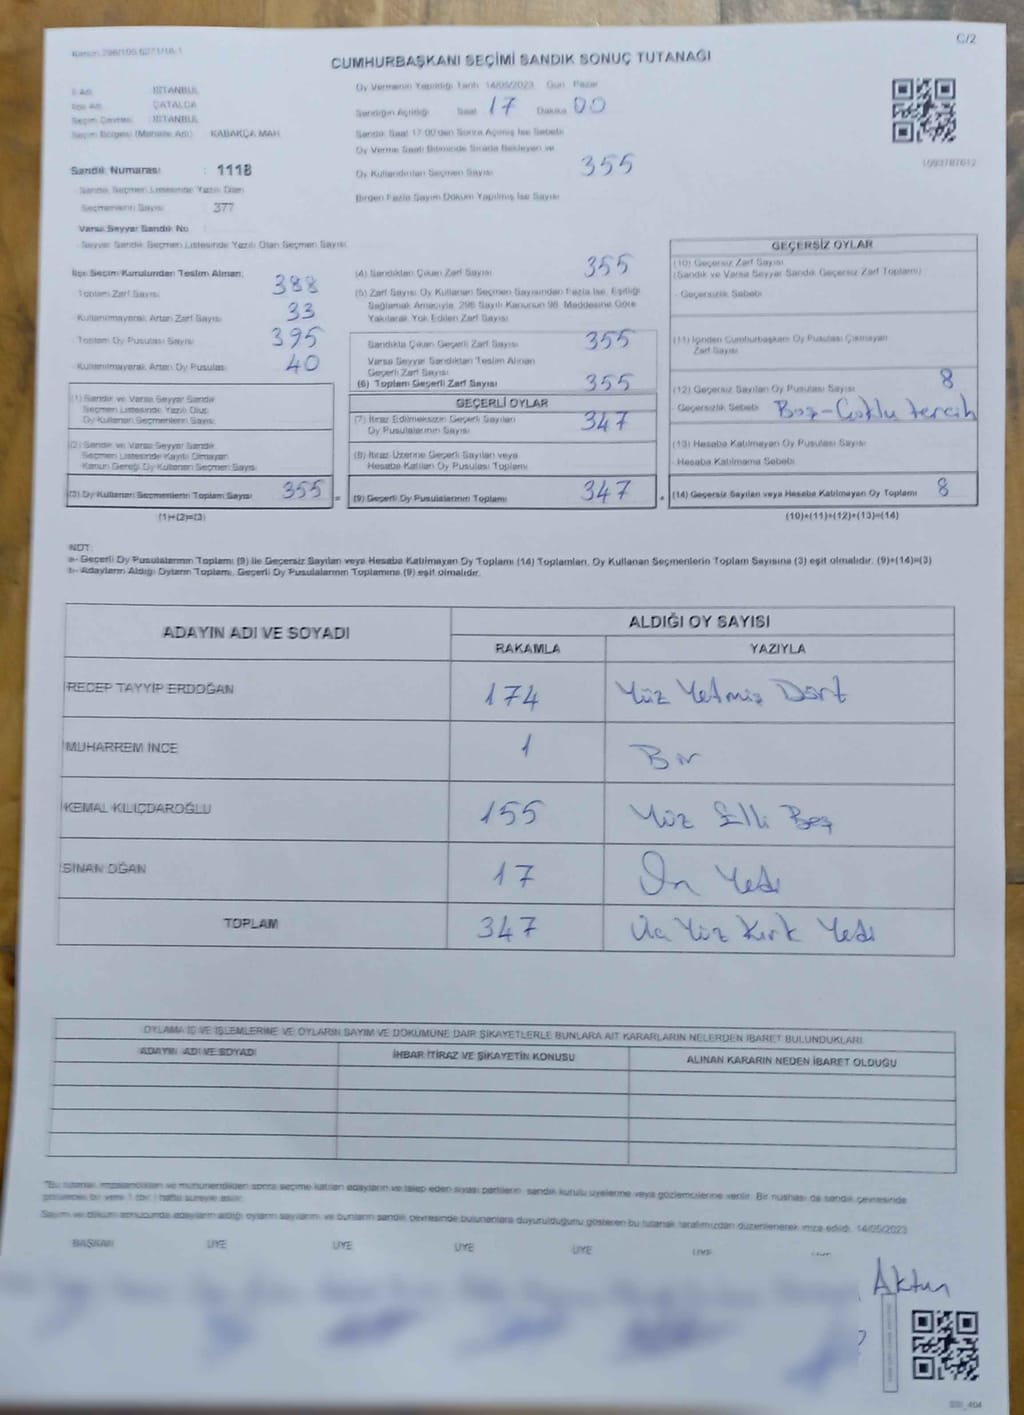 Kanun: 298/105 6271/18-1
C/2
CUMHURBAŞKANI SEÇİMİ SANDIK SONUÇ TUTANAĞI
İl Adı : İSTANBUL
İlçe Adı : ÇATALCA
Seçim Çevresi : İSTANBUL
Seçim Bölgesi (Mahalle Adı) : KABAKÇA MAH.
Sandık Numarası : 1118
Sandık Seçmen Listesinde Yazılı Olan
Seçmenlerin Sayısı : 377
Varsa Seyyar Sandık No
Seyyar Sandık Seçmen Listesinde Yazılı Olan Seçmen Sayısı
Oy Vermenin Yapıldığı Tarih 14/05/2023 Gün Pazar
Sandığın Açıldığı Saat 17 Dakika 00
Sandık Saat 17:00'den Sonra Açılmış İse Sebebi
Oy Verme Saati Bitiminde Sırada Bekleyen ve
Oy Kullandırılan Seçmen Sayısı 355
Birden Fazla Sayım Döküm Yapılmış İse Sayısı
1093787612
İlçe Seçim Kurulundan Teslim Alınan:
Toplam Zarf Sayısı 388
Kullanılmayarak Artan Zarf Sayısı 33
Toplam Oy Pusulası Sayısı 395
Kullanılmayarak Artan Oy Pusulası 40
(1) Sandık ve Varsa Seyyar Sandık
Seçmen Listesinde Yazılı Olup
Oy Kullanan Seçmenlerin Sayısı
(2) Sandık ve Varsa Seyyar Sandık
Seçmen Listesinde Kayıtlı Olmayan
Kanun Gereği Oy Kullanan Seçmen Sayısı
(3) Oy Kullanan Seçmenlerin Toplam Sayısı 355
(1)+(2)=(3)
(4) Sandıktan Çıkan Zarf Sayısı 355
(5) Zarf Sayısı Oy Kullanan Seçmen Sayısından Fazla İse, Eşitliği
Sağlamak Amacıyla, 298 Sayılı Kanunun 98. Maddesine Göre
Yakılarak Yok Edilen Zarf Sayısı
Sandıkta Çıkan Geçerli Zarf Sayısı 355
Varsa Seyyar Sandıktan Teslim Alınan
Geçerli Zarf Sayısı
(6) Toplam Geçerli Zarf Sayısı 355
GEÇERLİ OYLAR
(7) İtiraz Edilmeksizin Geçerli Sayılan
Oy Pusulalarının Sayısı 347
(8) İtiraz Üzerine Geçerli Sayılan veya
Hesaba Katılan Oy Pusulası Toplamı
= (9) Geçerli Oy Pusulalarının Toplamı 347
GEÇERSİZ OYLAR
(10) Geçersiz Zarf Sayısı
(Sandık ve Varsa Seyyar Sandık Geçersiz Zarf Toplamı)
- Geçersizlik Sebebi
(11) İçinden Cumhurbaşkanı Oy Pusulası Çıkmayan
Zarf Sayısı
(12) Geçersiz Sayılan Oy Pusulası Sayısı 8
- Geçersizlik Sebebi Boş-Çoklu tercih
(13) Hesaba Katılmayan Oy Pusulası Sayısı
- Hesaba Katılmama Sebebi
+ (14) Geçersiz Sayılan veya Hesaba Katılmayan Oy Toplamı 8
(10)+(11)+(12)+(13)=(14)
NOT:
a- Geçerli Oy Pusulalarının Toplamı (9) ile Geçersiz Sayılan veya Hesaba Katılmayan Oy Toplamı (14) Toplamları, Oy Kullanan Seçmenlerin Toplam Sayısına (3) eşit olmalıdır. (9)+(14)=(3)
b- Adayların Aldığı Oyların Toplamı, Geçerli Oy Pusulalarının Toplamına (9) eşit olmalıdır.
ADAYIN ADI VE SOYADI
ALDIĞI OY SAYISI
RAKAMLA YAZIYLA
RECEP TAYYİP ERDOĞAN 174 Yüz Yetmiş Dört
MUHARREM İNCE 1 Bir
KEMAL KILIÇDAROĞLU 155 Yüz Elli Beş
SİNAN OĞAN 17 On Yedi
TOPLAM 347 Üç Yüz Kırk Yedi
OYLAMA İŞ VE İŞLEMLERİNE VE OYLARIN SAYIM VE DÖKÜMÜNE DAİR ŞİKAYETLERLE BUNLARA AİT KARARLARIN NELERDEN İBARET BULUNDUKLARI
ADAYIN ADI VE SOYADI İHBAR İTİRAZ VE ŞİKAYETİN KONUSU ALINAN KARARIN NEDEN İBARET OLDUĞU
*Bu tutanak, imzalandıktan ve mühürlendikten sonra seçime katılan adayların ve talep eden siyasi partilerin, sandık kurulu üyelerine veya gözlemcilerine verilir. Bir nüshası da sandık çevresinde
görülecek bir yere 1 (bir) hafta süreyle asılır.
Sayım ve döküm sonucunda adayların aldığı oyların sayılarını ve bunların sandık çevresinde bulunanlara duyurulduğunu gösteren bu tutanak tarafımızdan düzenlenerek imza edildi. 14/05/2023
BAŞKAN ÜYE ÜYE ÜYE ÜYE ÜYE
Aktun